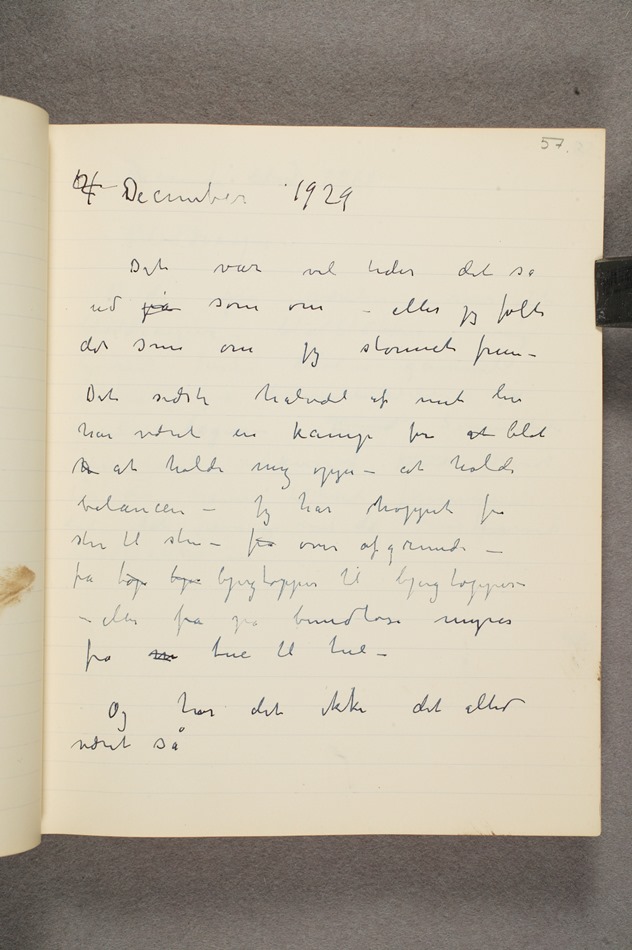 57.
4 December 1929
Det var vel tider det så
ud på som om – eller jeg følte
det som om jeg stormet frem –
Det sidste halvdel af mit liv
har været en kamp for at blot
at holde mig oppe – at holde
balancen – Jeg har hoppet fra
sten til sten – fra over afgrunde –
fra top bje bjergtopper til bjergtopper –
– eller fra på bundløse myrer
fra tue til tue –
Og har det ikke det altid
været så